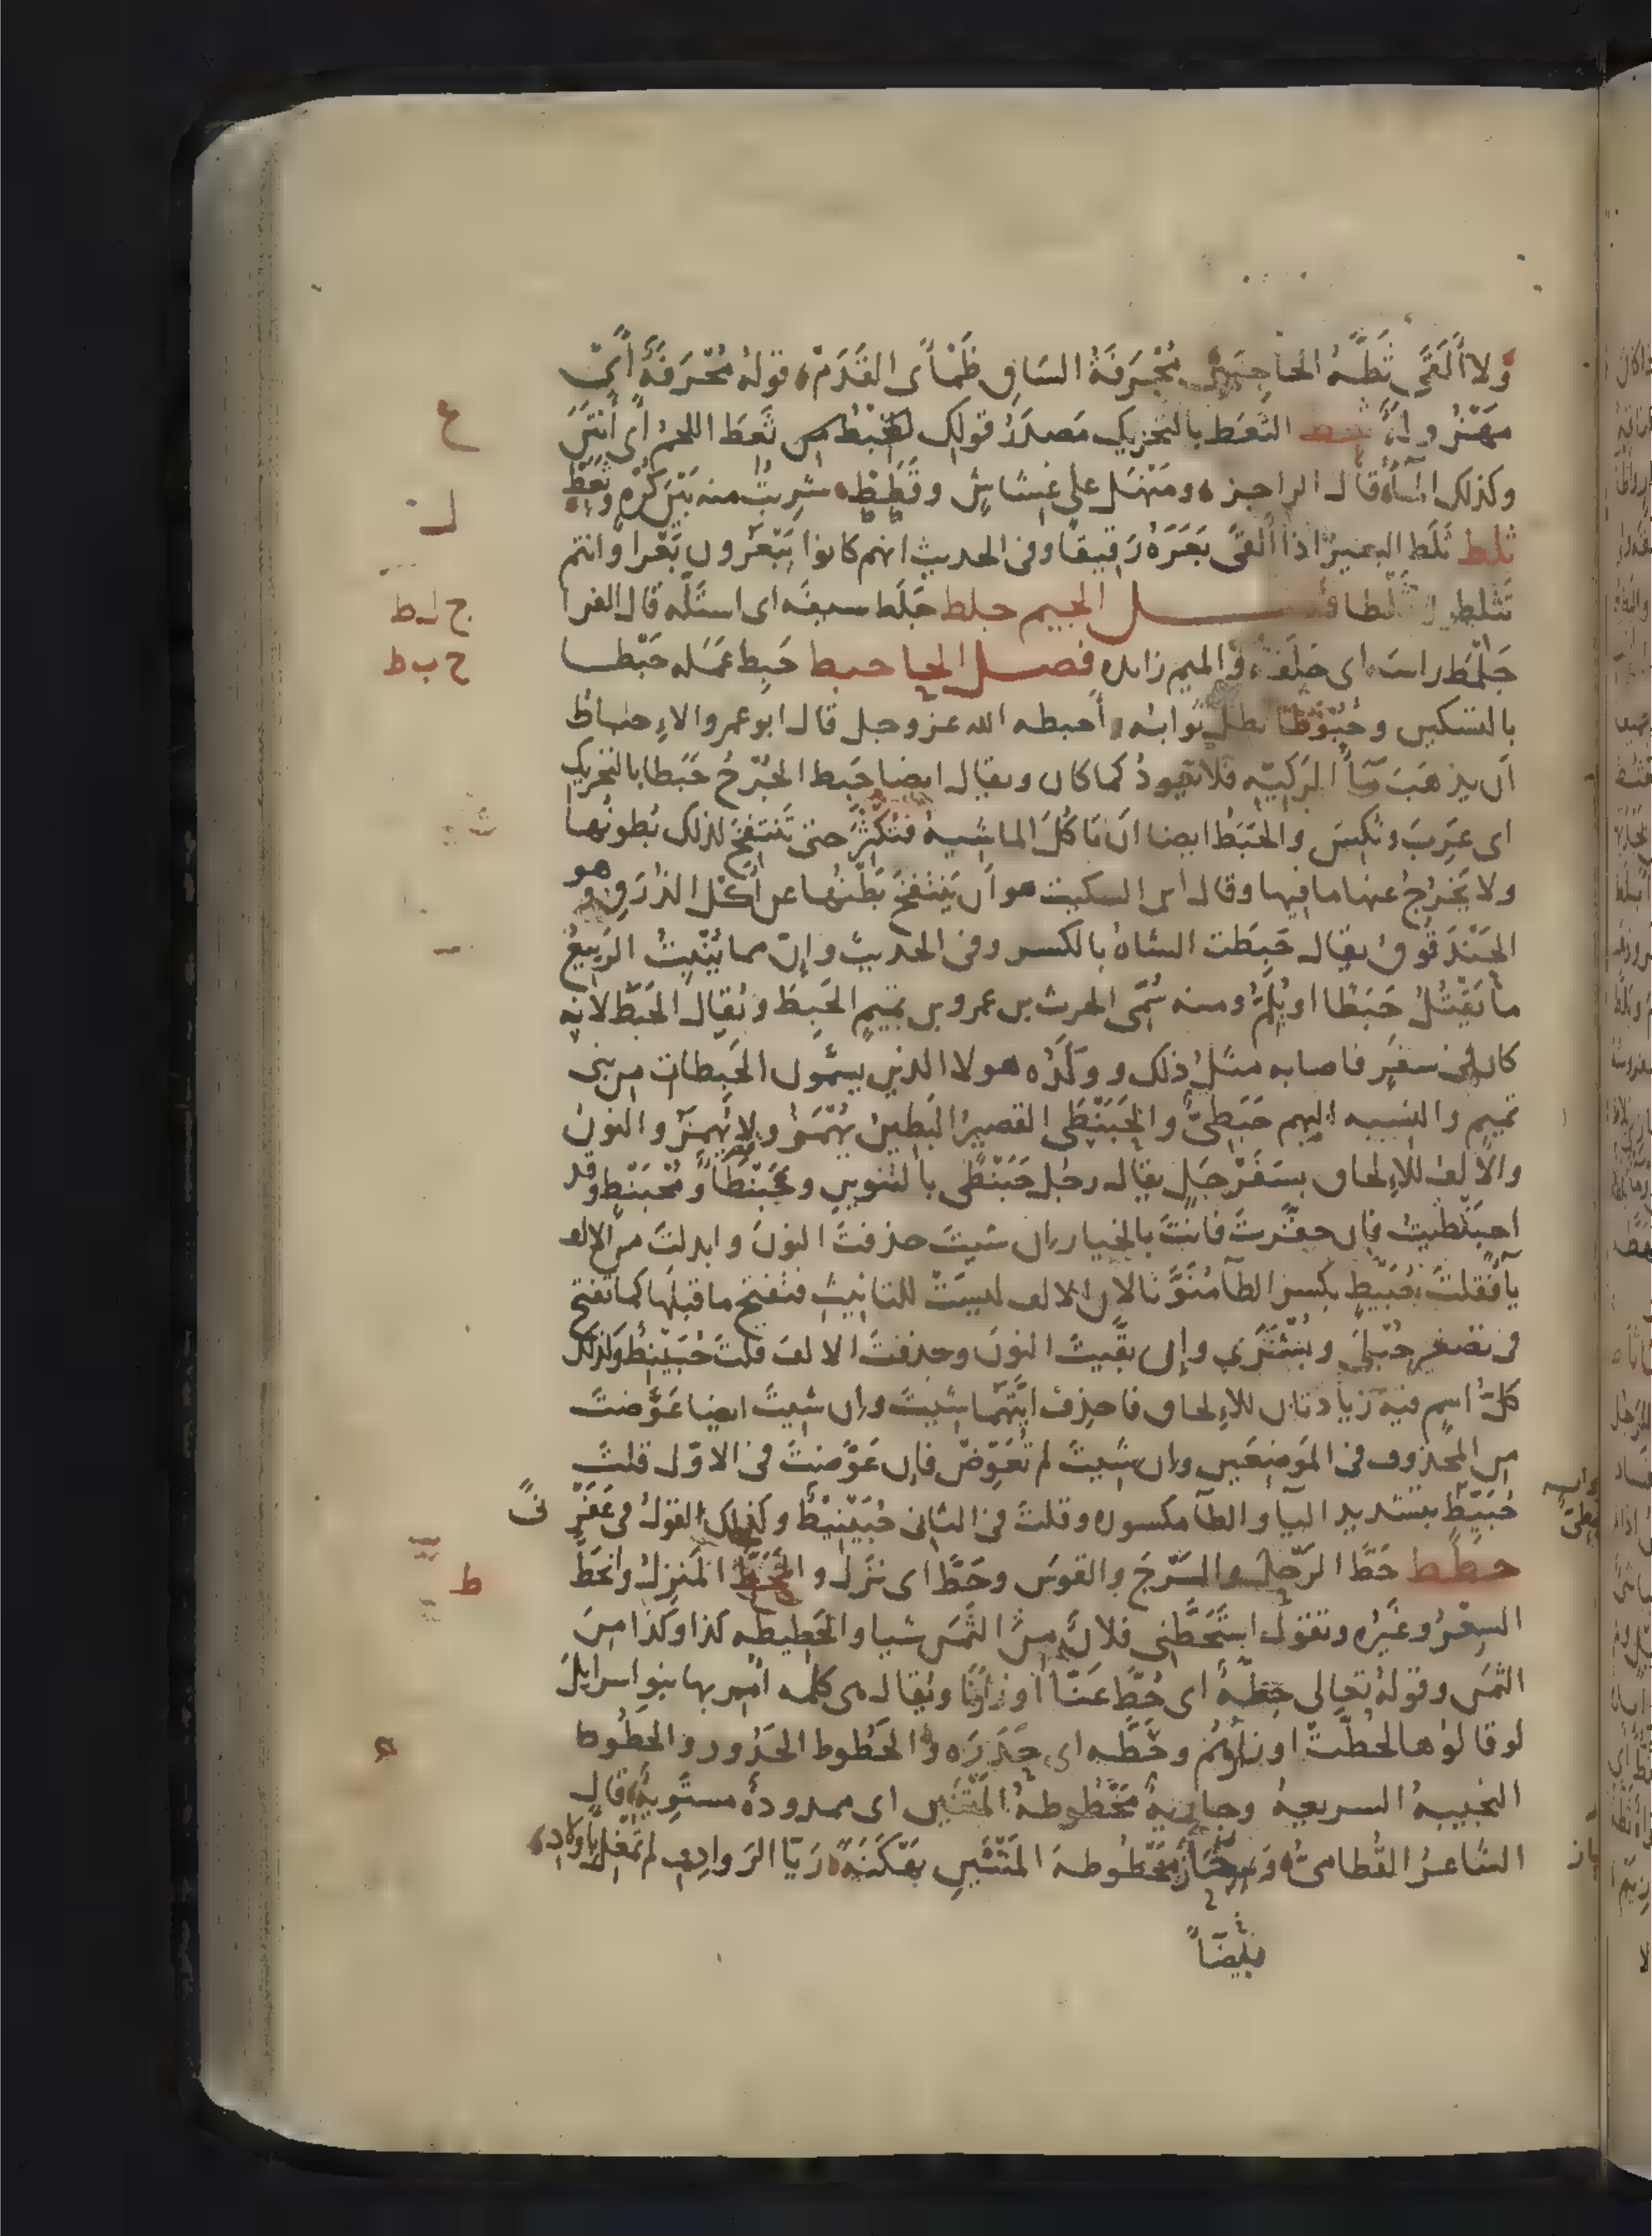 ولا ألقى ثطّه الحاجبين محرفة الساق ظمأى القدم قوله محرفة أي
مهزولة ثعط الثعط بالتحريك مصدر قولك ثعط اللحم أي أنتن
وكذلك الماء قال الراجز ومنهل على غشاش وفلط شربت منه بين كره وثعط
ثلط ثلط البعير اذا ألقى بعره رقيقا وفي الحديث انهم كانوا يبعرون بعرا وانتم
تثلطون ثلطا فصل الجيم جلط جلط سيفه اى استله قال الفرا
جلمط راسه اى حلقه والميم زايده فصل الحا حبط حبط عمله حبطا
بالتسكين وحبوطا بطل ثوابه وأحبطه الله عز وجل قال ابو عمرو الاحباط
أن يذهب مآ الركيّه فلا يعود كما كان ويقال ايضا حبط الجرح حبطا بالتحريك
اى عرب ونكس والحبط ايضا ان تاكل الماشيه فتكثر حتى تنتفخ لذلك بطونها
ولا يخرج عنها ما فيها وقال ابن السكيت هو أن ينتفخ بطنها عن أكل الذرق وهو
الحندقوق يقال حبطت الشاة بالكسر وفى الحديث وإن مما ينبت الربيع
ما يقتل حبطا او يلم ومنه سمى الحرث بن عمرو بن تميم الحبط ويقال الحبط لانه
كان فى سفر فاصابه مثل ذلك وولده هولا الذين يسمون الحبطات من بنى
تميم والنسبه اليهم حبطى والحبنطى القصير البطين يهمز ولا يهمز والنون
والالف للإلحاق بسفرجل يقال رجل حبنطى بالتنوين وحبنطأ ومحبنط وقد
احبنطيت فان حقرت فانت بالخيار ان شيت حذفت النون وابدلت من الالف
يآ فقلت حبيط بكسر الطآ منونا لان الالف ليست للتانيث فتفتح ما قبلها كما تفتح
فى تصغير حبلى وبشرى وإن بقيت النون وحذفت الالف قلت حبينط وكذلك
كل اسم فيه زيادتان للإلحاق فاحذف ايتهما شيت وان شيت ايضا عوضت
من المحذوف فى الموضعين وان شيت لم تعوض فان عوضت فى الاول قلت
حبيط بتشديد اليآ والطآ مكسوره وقلت فى الثانى حبينيط وكذلك القول فى عفرنى
حطط حط الرحل والسرج والقوس وحط اى نزل والمحط المنزل وانحط
السعر وغيره وتقول استحطنى فلان من الثمن شيا والحطيطه كذا وكذا من
الثمن وقوله تعالى حطة اى حط عنا أوزارنا ويقال هى كلمه أمر بها بنو اسرايل
لو قالوها لحطت اوزارهم وحطه اى حدره والحطوط الحدور والحطوط
النجيبة السريعة وجارية محطوطة المتنين اى ممدودة مستوية قال
الشاعر القطامى محطوطة المتنين بهكنة ريا الروادف لم تمغل بأولاد
بيضاً
ع
ل
ج ل ط
ح ب ط
ط